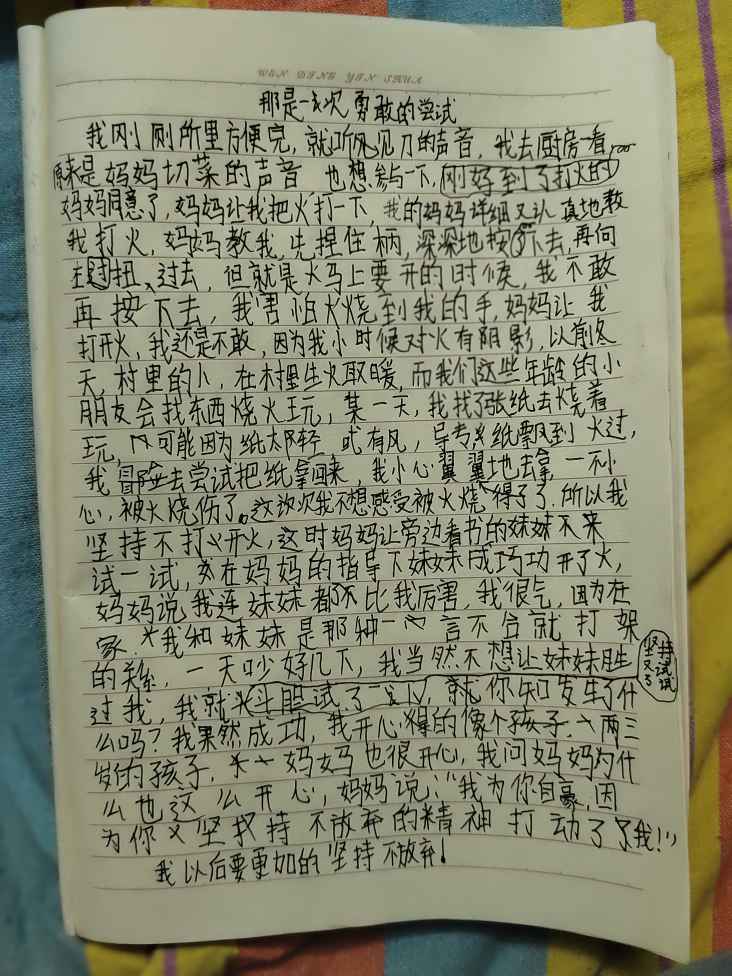 WEN DING YIN SHUA
那是一次勇敢的尝试
我刚厕所里方便完，就听见刀的声音，我去厨房一看，
原来是妈妈切菜的声音 也想参与一下，刚好到了打火的
妈妈同意了，妈妈让我把火打一下，我的妈妈详细又认真地教
我打火，妈妈教我，先捏住柄，深深地按下去，再向
左扭过去，但就是火马上要开的时候，我不敢
再按下去，我害怕火烧到我的手，妈妈让我
打开火，我还是不敢，因为我小时候对火有阴影，以前冬
天，村里的小，在村里生火取暖，而我们这些年龄的小
朋友会找东西烧火玩，某一天，我找了张纸去烧着
玩，可能因为纸太轻，或有风，导专纸飘到火过，
我冒险去尝试把纸拿回来，我小心翼翼地去拿，一不小
心，被火烧伤了。这次我不想感受被火烧得了。所以我
坚持不打开火，这时妈妈让旁边看书的妹妹不来
试一试，在妈妈的指导下妹妹成功开了火，
妈妈说我连妹妹都不比我厉害，我很气，因为在
家.我和妹妹是那种一言不合就打架
的关系，一天吵好几下，我当然不想让妹妹胜
坚持又试了试
过我，我就斗胆试了一，就你知发生了什
么吗？我果然成功，我开心得的像个孩子.两三
岁的孩子.妈妈也很开心，我问妈妈为什
么也这么开心，妈妈说：“我为你自豪，因
为你坚持不放弃的精神打动了了我！”
我以后要更加的坚持不放弃！